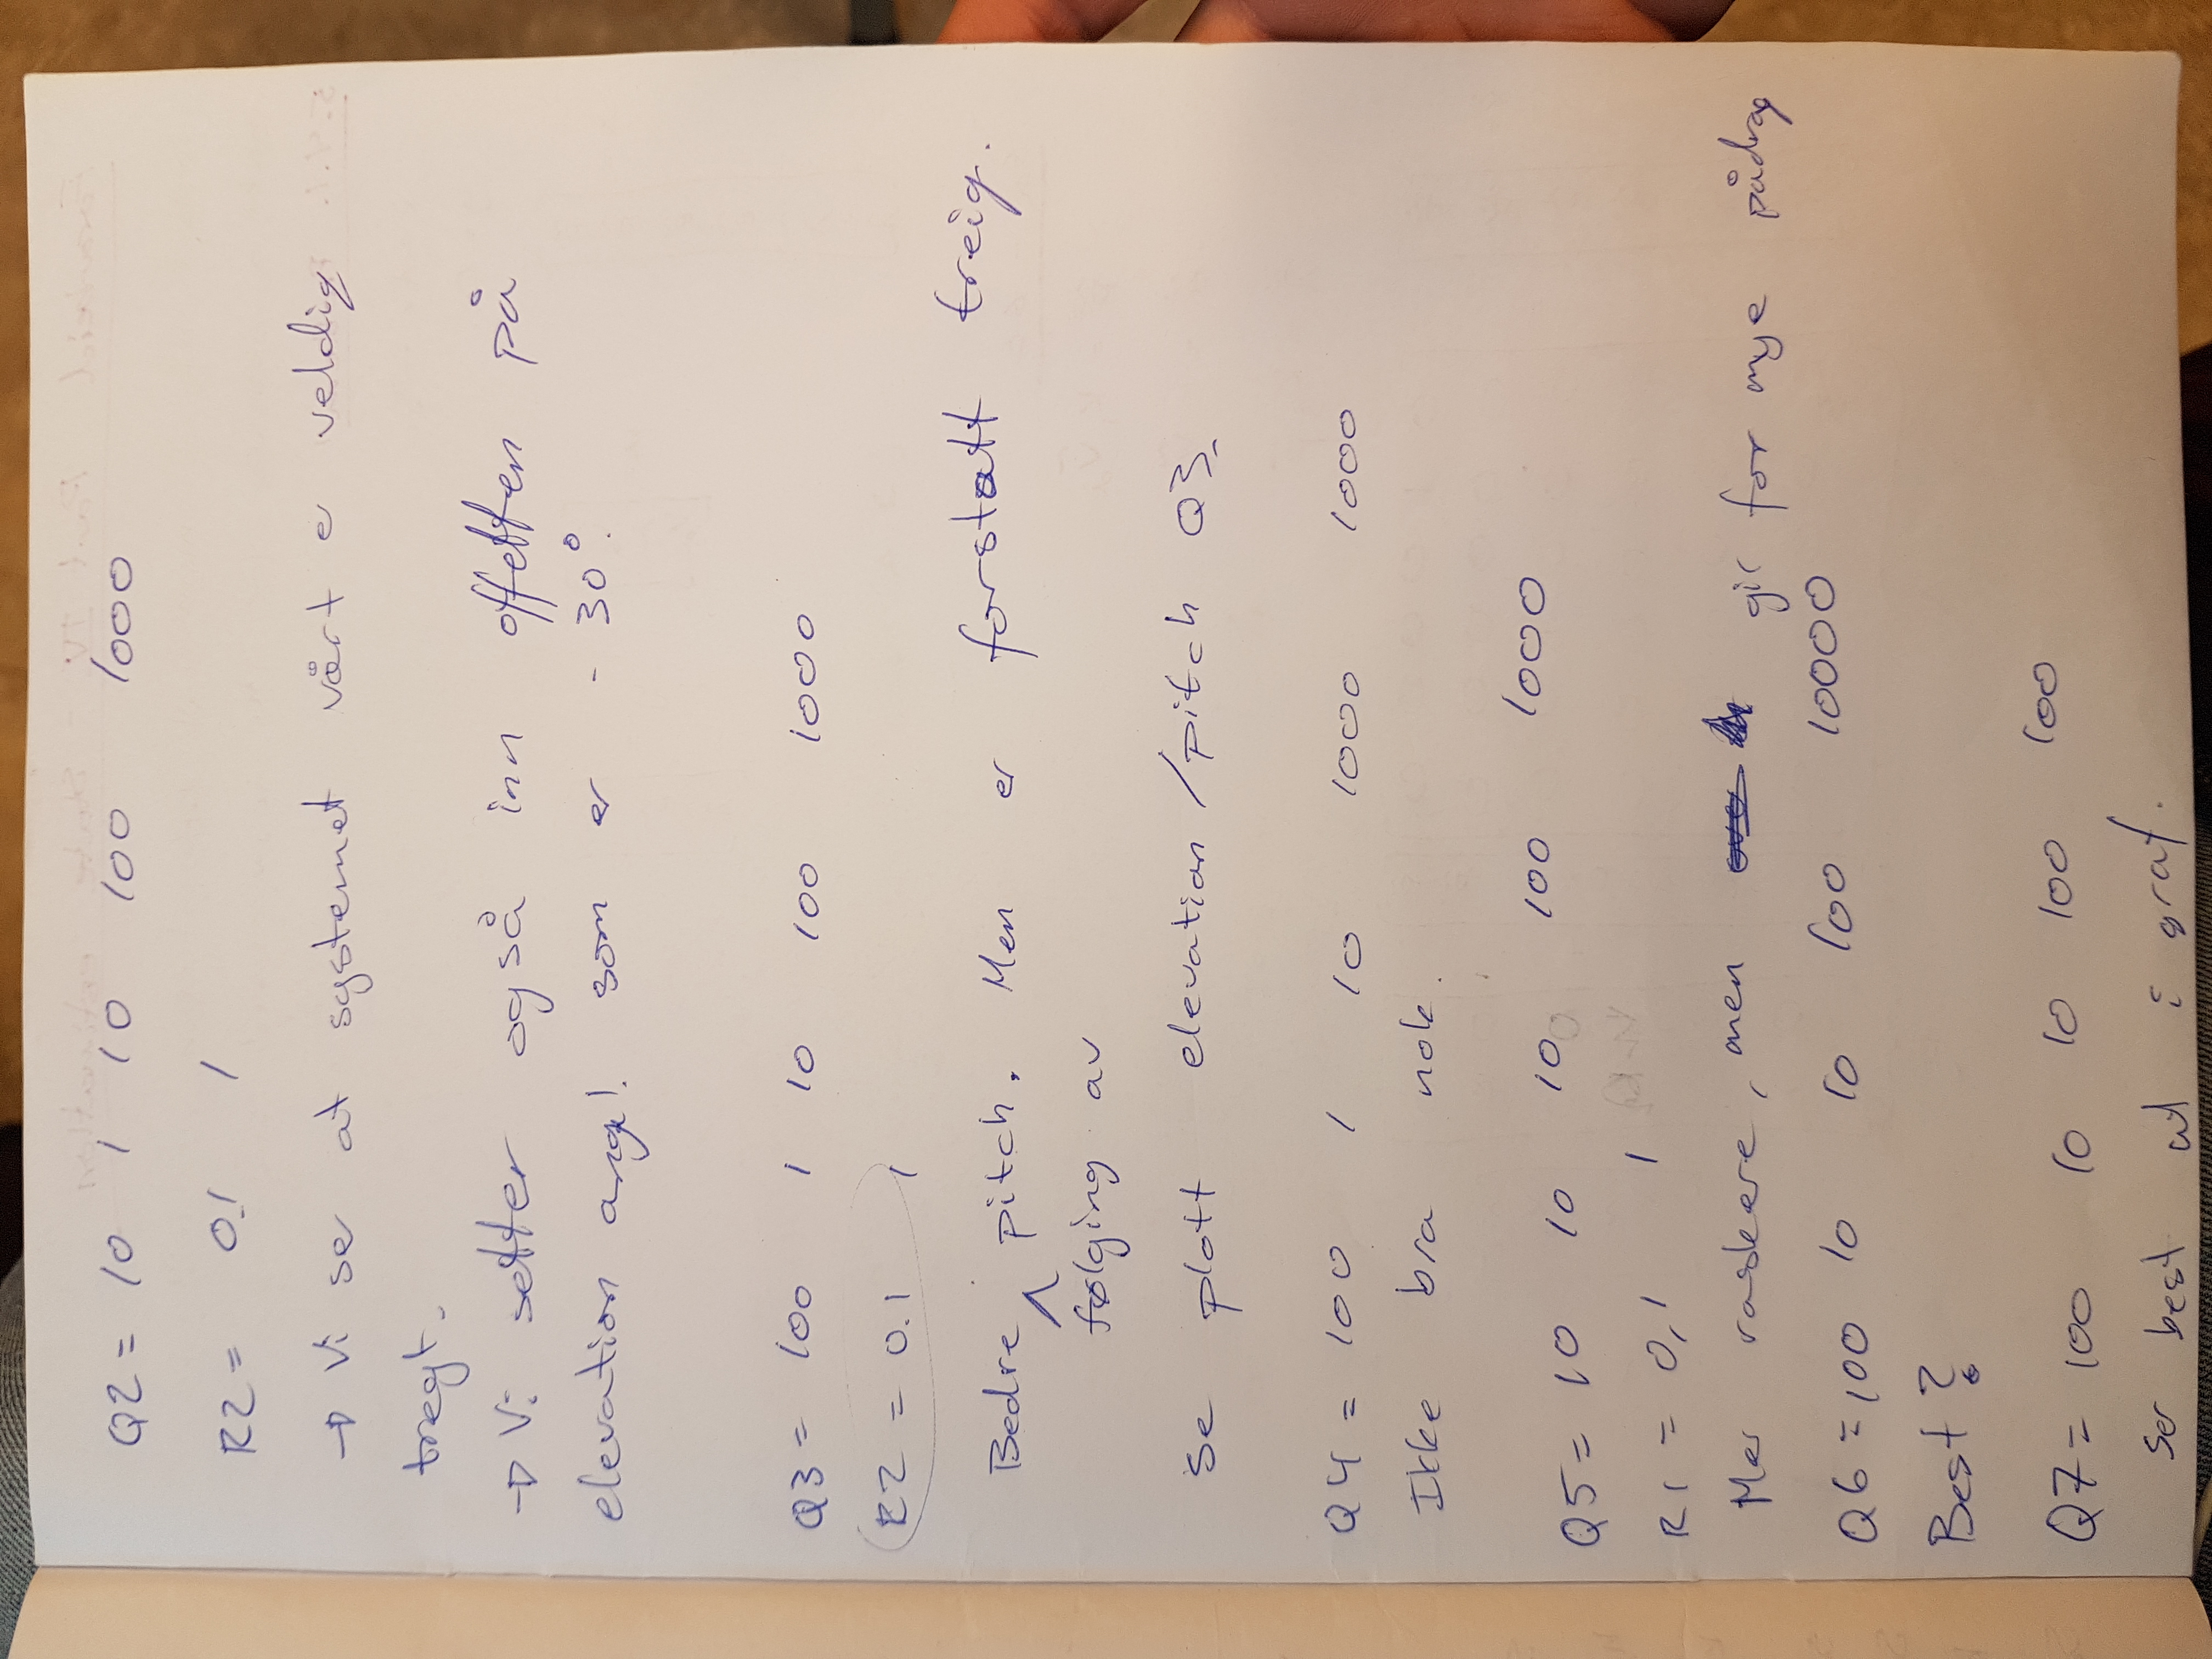 Q2 = 10 1 10 100 1000
R2 = 0.1 1
→ Vi ser at systemet vårt er veldig
tregt.
→ Vi setter også inn offetten på
elevation angel. som er - 30°.
Q3 = 100 1 10 100 1000
R2 = 0.1 1
Bedre ^ pitch. Men er forstatt treig.
følging av
Se plott elevation/pitch Q3.
Q4 = 100 1 10 1000 1000
Ikke bra nok.
Q5 = 10 10 10 100 1000
R1 = 0,1 1
Mer raskere, men gir for mye pådrag
Q6 = 100 10 10 100 10000
Best?
Q7 = 100 10 10 100 100
Ser best ut i graf.